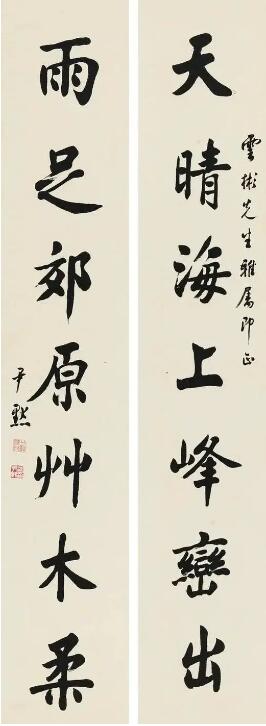 天晴海上峰巒出
雲彬先生雅屬即正
雨足郊原艸木柔
尹默